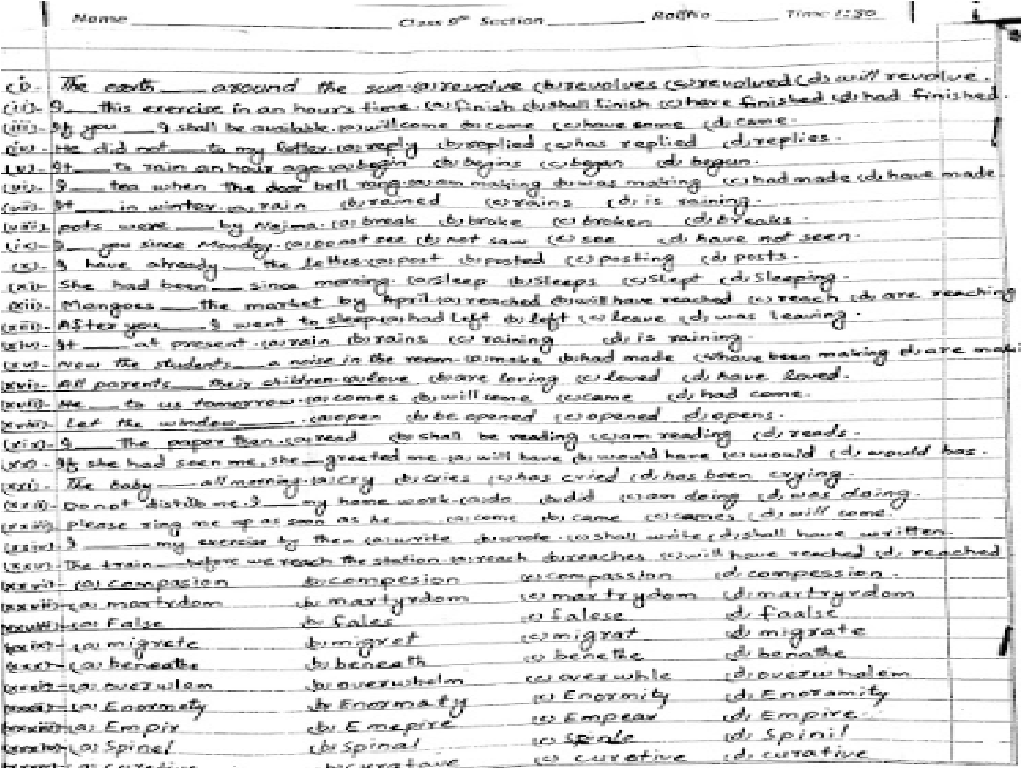 Name Class 9th Section Roll No Time 1:30
(i). The earth ___ around the sun. (a) revolve (b) revolves (c) revolved (d) will revolve.
(ii). I ___ this exercise in an hour's time. (a) finish (b) shall finish (c) have finished (d) had finished.
(iii). If you ___ I shall be available. (a) will come (b) come (c) have come (d) came.
(iv). He did not ___ to my letter. (a) reply (b) replied (c) has replied (d) replies.
(v). It ___ to rain an hour ago. (a) begin (b) begins (c) began (d) begun.
(vi). I ___ tea when the door bell rang. (a) am making (b) was making (c) had made (d) have made
(vii). It ___ in winter. (a) rain (b) rained (c) rains (d) is raining.
(viii). pots were ___ by Najma. (a) break (b) broke (c) broken (d) breaks.
(ix). I ___ you since Monday. (a) do not see (b) not saw (c) see (d) have not seen.
(x). I have already ___ the letter. (a) post (b) posted (c) posting (d) posts.
(xi). She had been ___ since morning. (a) sleep (b) sleeps (c) slept (d) sleeping.
(xii). Mangoes ___ the market by April. (a) reached (b) will have reached (c) reach (d) are reaching
(xiii). After you ___ I went to sleep. (a) had left (b) left (c) leave (d) was leaving.
(xiv). It ___ at present. (a) rain (b) rains (c) raining (d) is raining.
(xv). Now the students ___ a noise in the room. (a) make (b) had made (c) have been making (d) are maki
(xvi). All parents ___ their children. (a) love (b) are loving (c) loved (d) have loved.
(xvii). He ___ to us tomorrow. (a) comes (b) will come (c) came (d) had come.
(xviii). Let the window ___. (a) open (b) be opened (c) opened (d) opens.
(xix). I ___ the paper than. (a) read (b) shall be reading (c) am reading (d) reads.
(xx). If she had seen me, she ___ greeted me. (a) will have (b) would have (c) would (d) would has.
(xxi). The baby ___ all morning. (a) cry (b) cries (c) has cried (d) has been crying.
(xxii). Do not distrub me. I ___ my home work. (a) do (b) did (c) am doing (d) was doing.
(xxiii). please ring me up as soon as he ___ (a) come (b) came (c) comes (d) will come.
(xxiv). I ___ my exercise by then. (a) write (b) wrote (c) shall write (d) shall have written.
(xxv). The train ___ before we reach the station. (a) reach (b) reaches (c) will have reached (d) reached
(xxvi)- (a) compasion (b) compesion (c) compassion (d) compession.
(xxvii)- (a) martrdom (b) martyrdom (c) martrydom (d) martryrdom
(xxviii)- (a) False (b) fales (c) falese (d) faalse
(xxix)- (a) migrete (b) migret (c) migrat (d) migrate
(xxx)- (a) beneathe (b) beneath (c) benethe (d) benathe
(a) overwlem (b) overwhelm (c) overwhle (d) overwhalem
(a) Enormety (b) Enormaty (c) Enormity (d) Enoramity
(a) Empir (b) Emepire (c) Empear (d) Empire.
(a) Spinel (b) Spinal (c) (d) Spinil
(c) curetive (d) curative